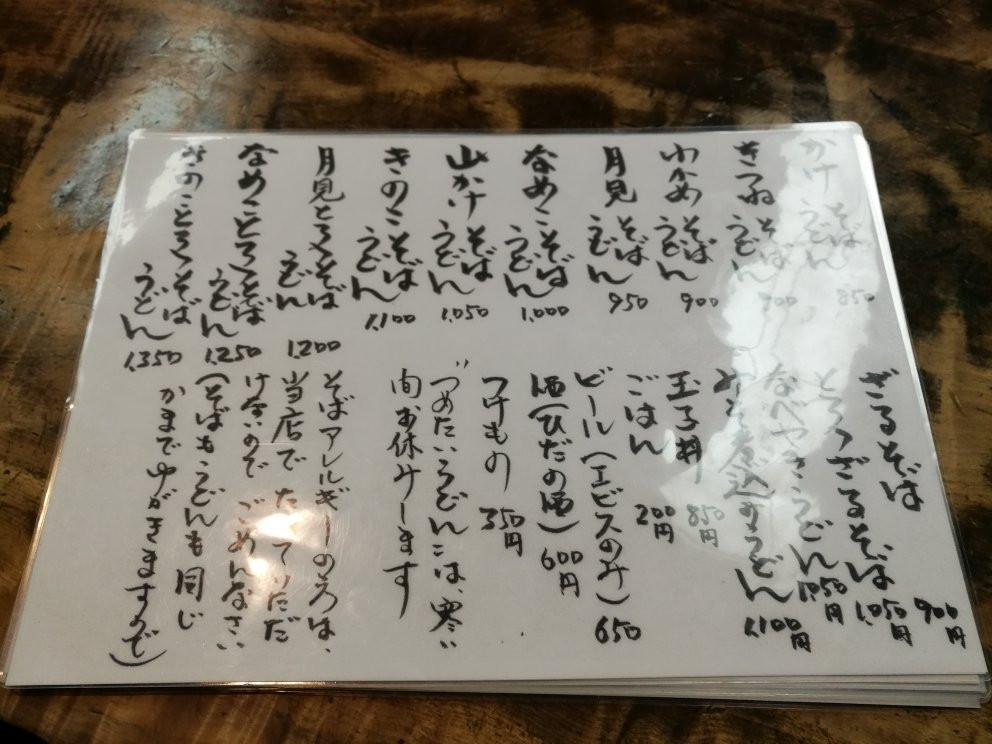 かけ そば うどん 850
きつね そば うどん 900
わかめ そば うどん 900
月見 そば うどん 950
なめこ そば うどん 1,000
山かけ そば うどん 1,050
きのこ そば うどん 1,100
月見とろろ そば うどん 1,200
なめことろろ そば うどん 1,250
きのことろろ そば うどん 1,350
ざるそば 900円
とろろざるそば 1,050円
なべやきうどん 1,050円
みそ煮込みうどん 1,100円
玉子丼 850円
ごはん 200円
ビール(エビスのみ) 650
酒(ひだの酒) 600円
つけもの 350円
"つめたいうどん"は、寒い
間お休みします
そばアレルギーの方は、
当店で
け
ないので ごめんなさい
(そばもうどんも同じ
かまでゆがきますので)